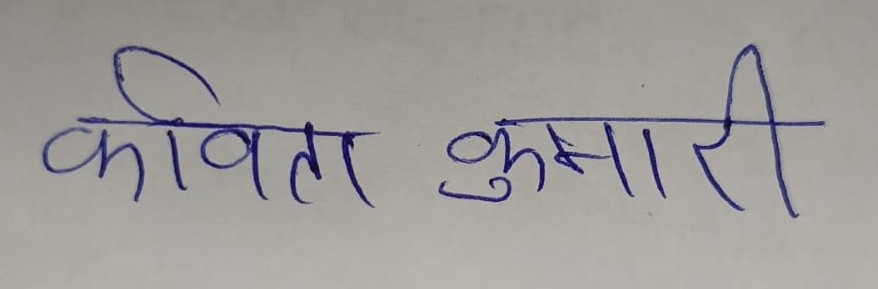 कविता कुमारी